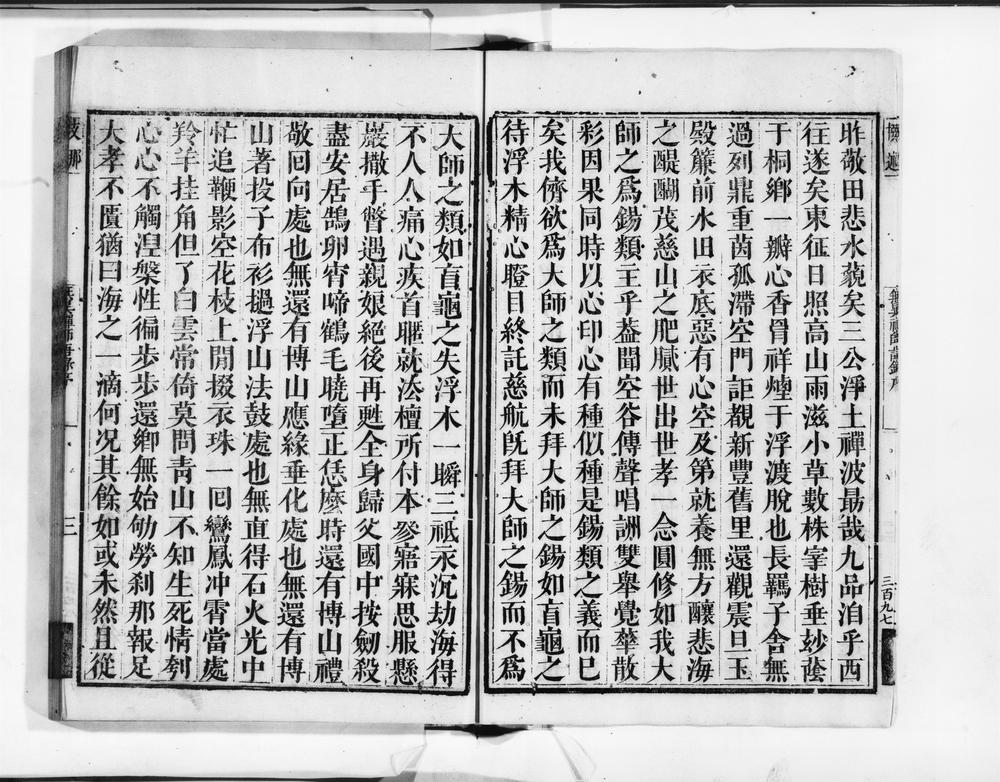 昨敬田悲水藐矣三公淨土禪波勗哉九品洎乎西
往遂矣東征日照高山雨滋小草數株宰樹垂妙蔭
于桐鄉一瓣心香骨祥煙于浮渡脫也長羈子舍無
過列鼎重茵孤滯空門詎覩新豐舊里還觀震旦玉
殿簾前水田衣底惡有心空及第就養無方釀悲海
之醍醐茂慈山之肥膩世出世孝一念圓修如我大
師之爲錫類主乎葢聞空谷傳聲唱詶雙舉覺華散
彩因果同時以心印心有種似種是錫類之義而已
矣我儕欲爲大師之類而未拜大師之錫如盲龜之
待浮木精心瞪目終託慈航旣拜大師之錫而不爲
大師之類如盲龜之失浮木一瞬三祇永沉劫海得
不人人痛心疾首聊就法檀所付本參寤寐思服懸
巖撒手瞥遇親娘絕後再甦全身歸父國中按劒殺
盡安居鵠卵宵啼鶴毛曉墮正恁麼時還有博山禮
敬回向處也無還有博山應緣垂化處也無還有博
山著投子布衫撾浮山法鼓處也無直得石火光中
忙追鞭影空花枝上閒掇衣珠一囘鸞鳳冲霄當處
羚羊挂角但了白雲常倚莫問靑山不知生死情刳
心心不觸湼槃性徧步步還鄉無始劬勞刹那報足
大孝不匱猶曰海之一滴何況其餘如或未然且從
三百九七
三